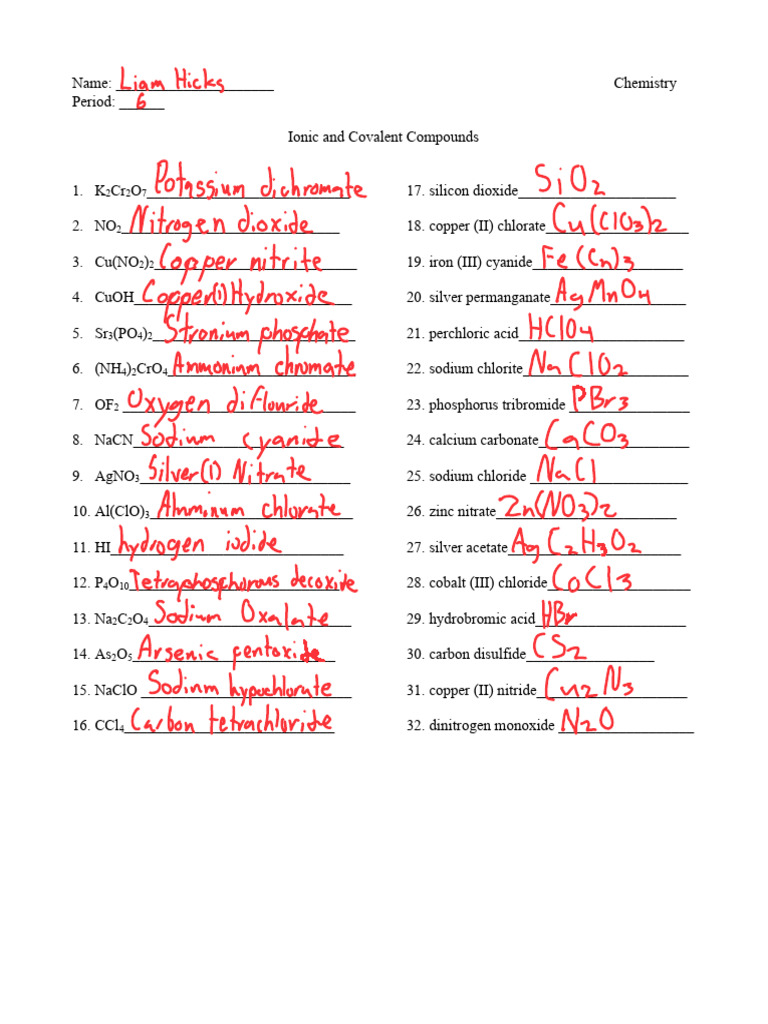 Name: Liam Hicks Chemistry
Period: 6
Ionic and Covalent Compounds
1. K2Cr2O7 Potassium dichromate
2. NO2 Nitrogen dioxide
3. Cu(NO2)2 Copper nitrite
4. CuOH Copper(1) Hydroxide
5. Sr3(PO4)2 Stronium phosphate
6. (NH4)2CrO4 Ammonium chromate
7. OF2 Oxygen diflouride
8. NaCN Sodium cyanide
9. AgNO3 Silver(1) Nitrate
10. Al(ClO)3 Aluminum chlorate
11. HI hydrogen iodide
12. P4O10 Tetraphosphorous decoxide
13. Na2C2O4 Sodium Oxalate
14. As2O5 Arsenic pentoxide
15. NaClO Sodium hypochlorate
16. CCl4 Carbon tetrachloride
17. silicon dioxide SiO2
18. copper (II) chlorate Cu(ClO3)2
19. iron (III) cyanide Fe(Cn)3
20. silver permanganate AgMnO4
21. perchloric acid HClO4
22. sodium chlorite NaClO2
23. phosphorus tribromide PBr3
24. calcium carbonate CaCO3
25. sodium chloride NaCl
26. zinc nitrate Zn(NO3)2
27. silver acetate AgC2H3O2
28. cobalt (III) chloride CoCl3
29. hydrobromic acid HBr
30. carbon disulfide CS2
31. copper (II) nitride Cu2N3
32. dinitrogen monoxide N2O